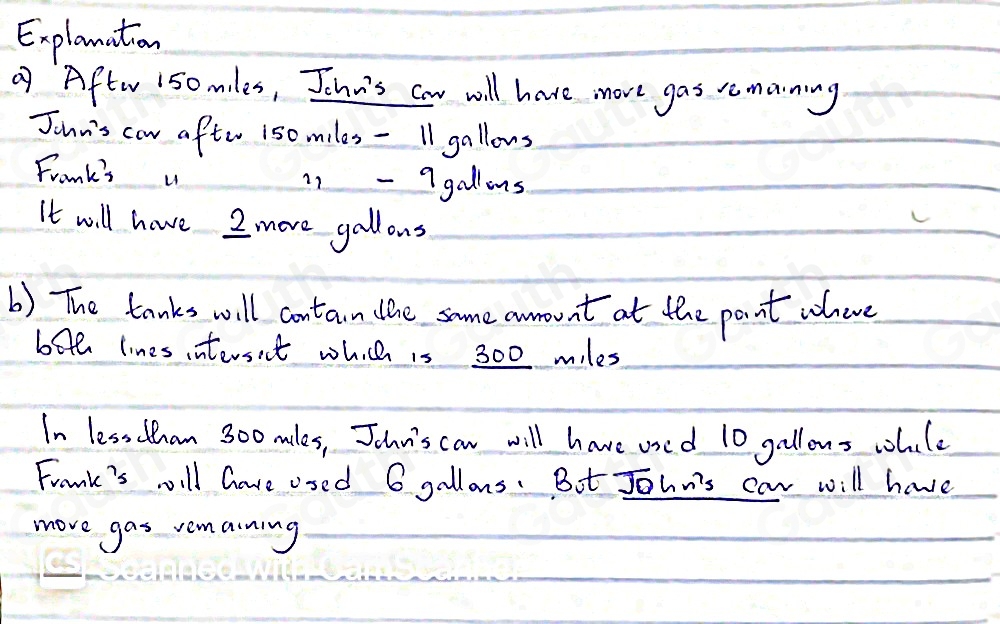 Explanation
a) After 150 miles, John's car will have more gas remaining
John's car after 150 miles - 11 gallons
Frank's " " - 9 gallons
It will have 2 more gallons
b) The tanks will contain the same amount at the point where
both lines intersect which is 300 miles
In less than 300 miles, John's car will have used 10 gallons while
Frank's will have used 6 gallons. But John's car will have
more gas remaining
CS Scanned with CamScanner